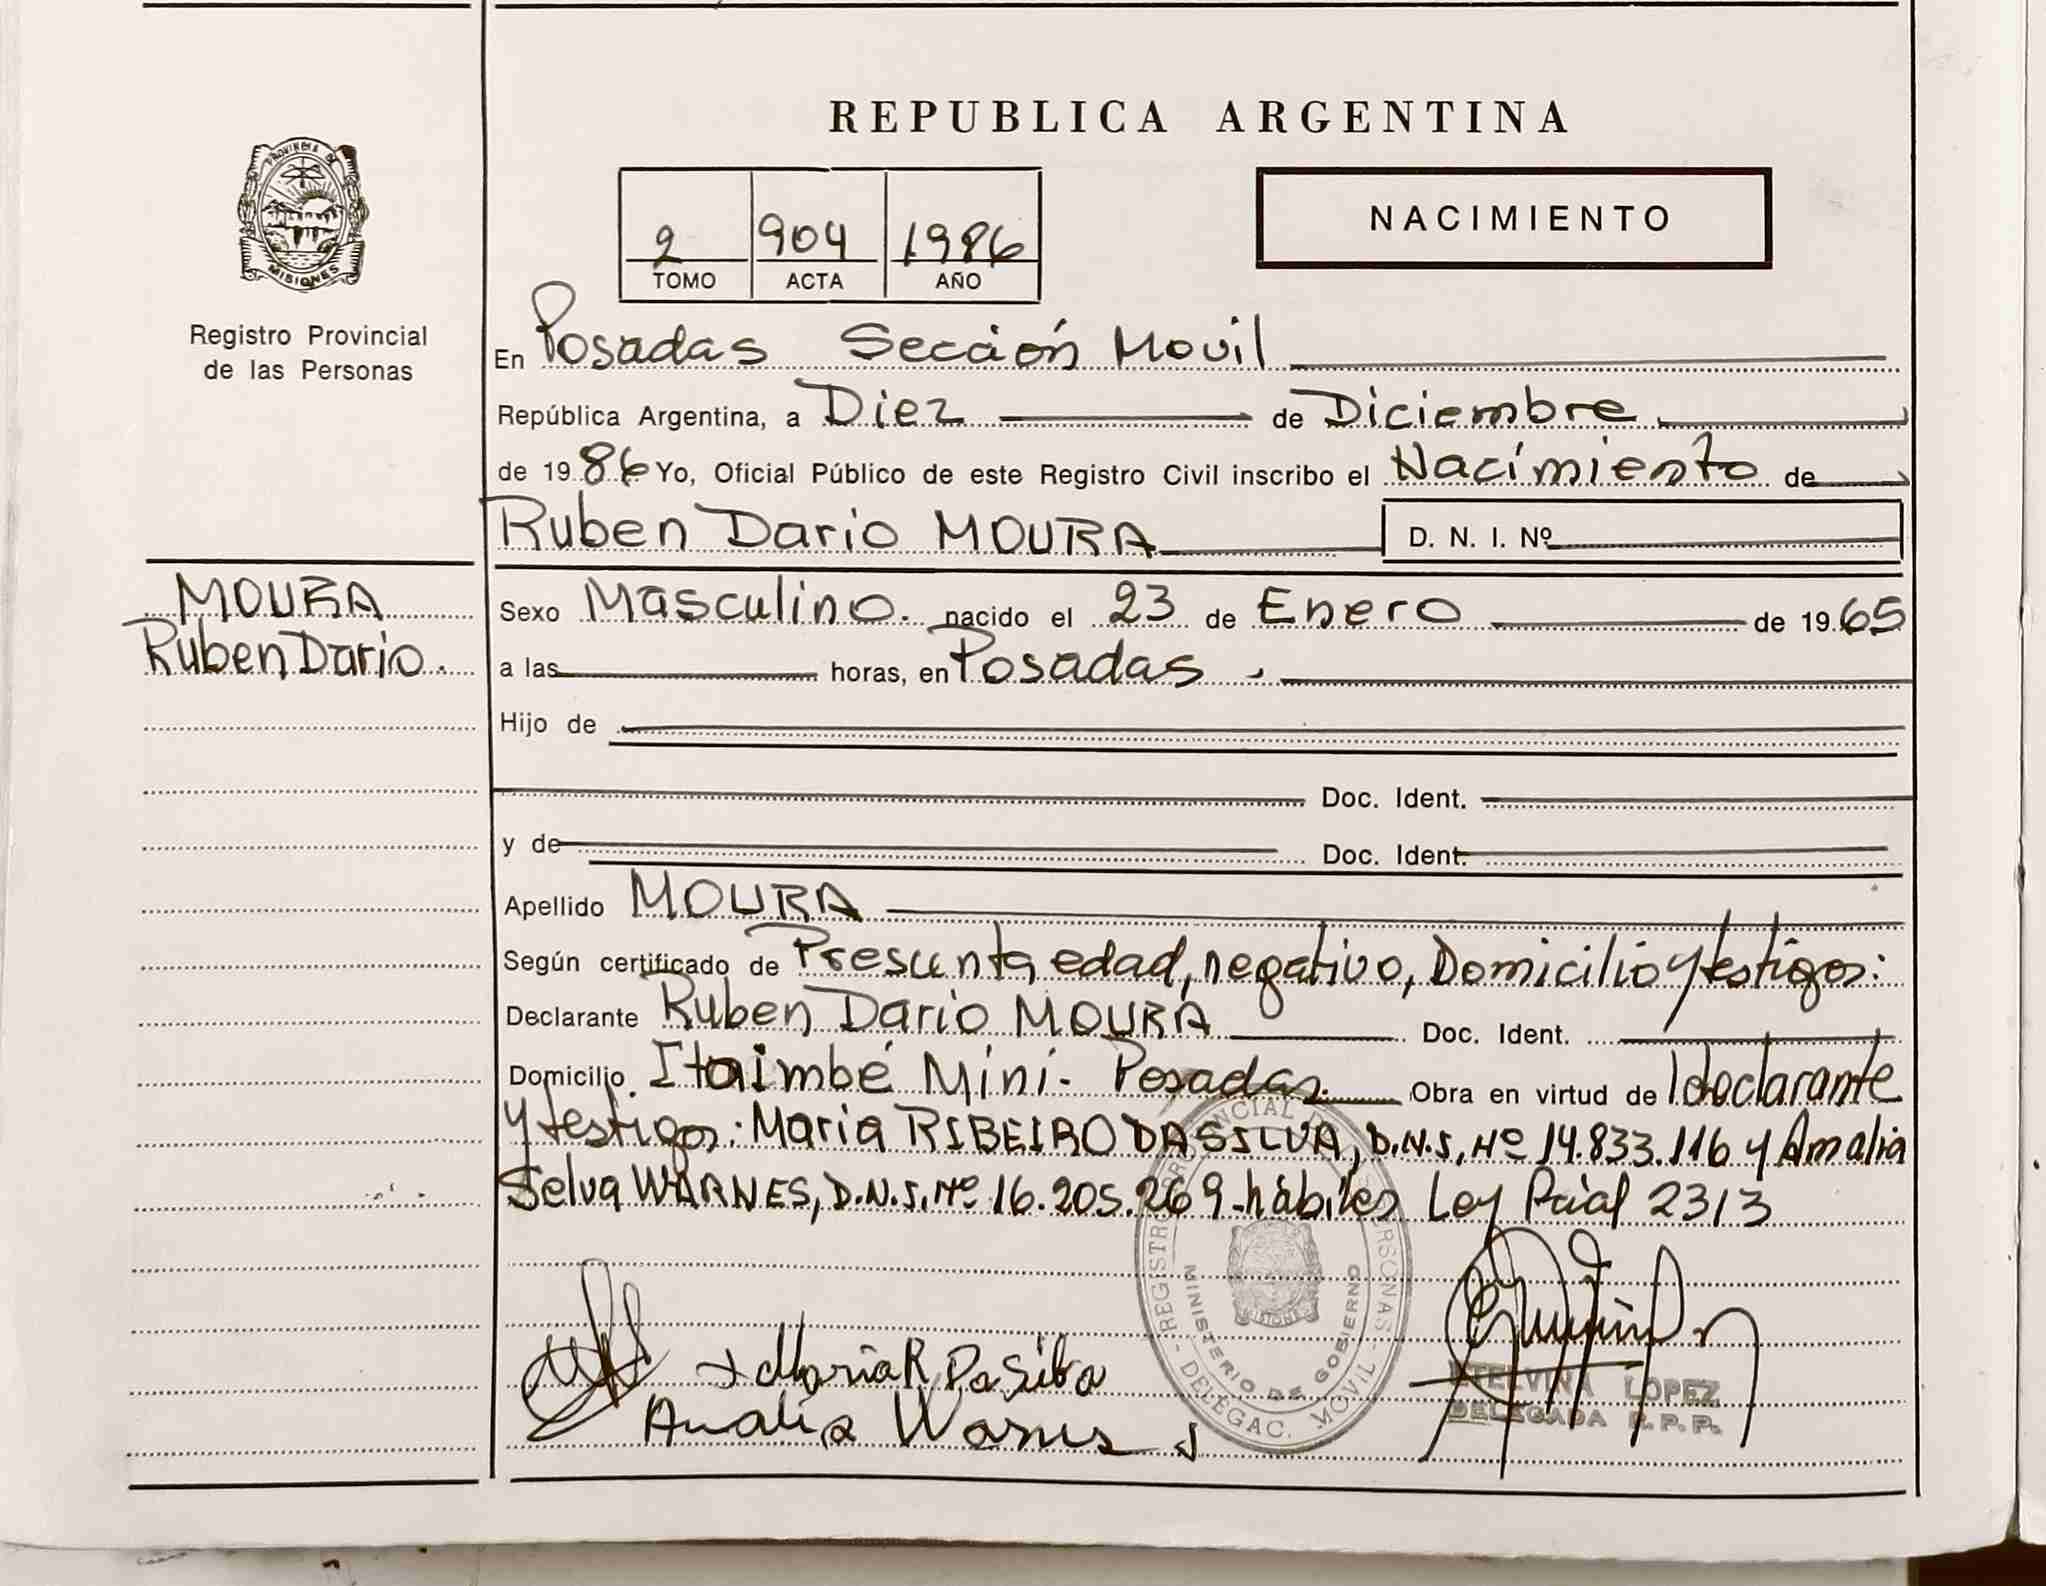 REPUBLICA ARGENTINA
PROVINCIA DE
MISIONES
Registro Provincial
de las Personas
2 904 1986
TOMO ACTA AÑO
NACIMIENTO
En Posadas Sección Movil
República Argentina, a Diez de Diciembre
de 1986 Yo, Oficial Público de este Registro Civil inscribo el Nacimiento de
Ruben Dario MOURA D. N. I. Nº
MOURA
Ruben Dario.
Sexo Masculino. nacido el 23 de Enero de 1965
a las horas, en Posadas.
Hijo de
Doc. Ident.
y de Doc. Ident.
Apellido MOURA
Según certificado de Presunta edad, negativo, Domicilio y testigos:
Declarante Ruben Dario MOURA Doc. Ident.
Domicilio Itaimbé Mini- Posadas. Obra en virtud de ldeclarante
y testigos: Maria RIBEIRO DASILVA, D.N.I. Nº 14.833.116 y Amalia
Selva WARNES, D.N.I. Nº 16.205.269-hábiles Ley Pcial 2313
REGISTRO PROVINCIAL DE LAS PERSONAS - DELEGAC. MOVIL
MINISTERIO DE GOBIERNO
MISIONES
Maria R Da Silva
Amalia Warnes
ETELVINA LOPEZ
DELEGADA R.P.P.